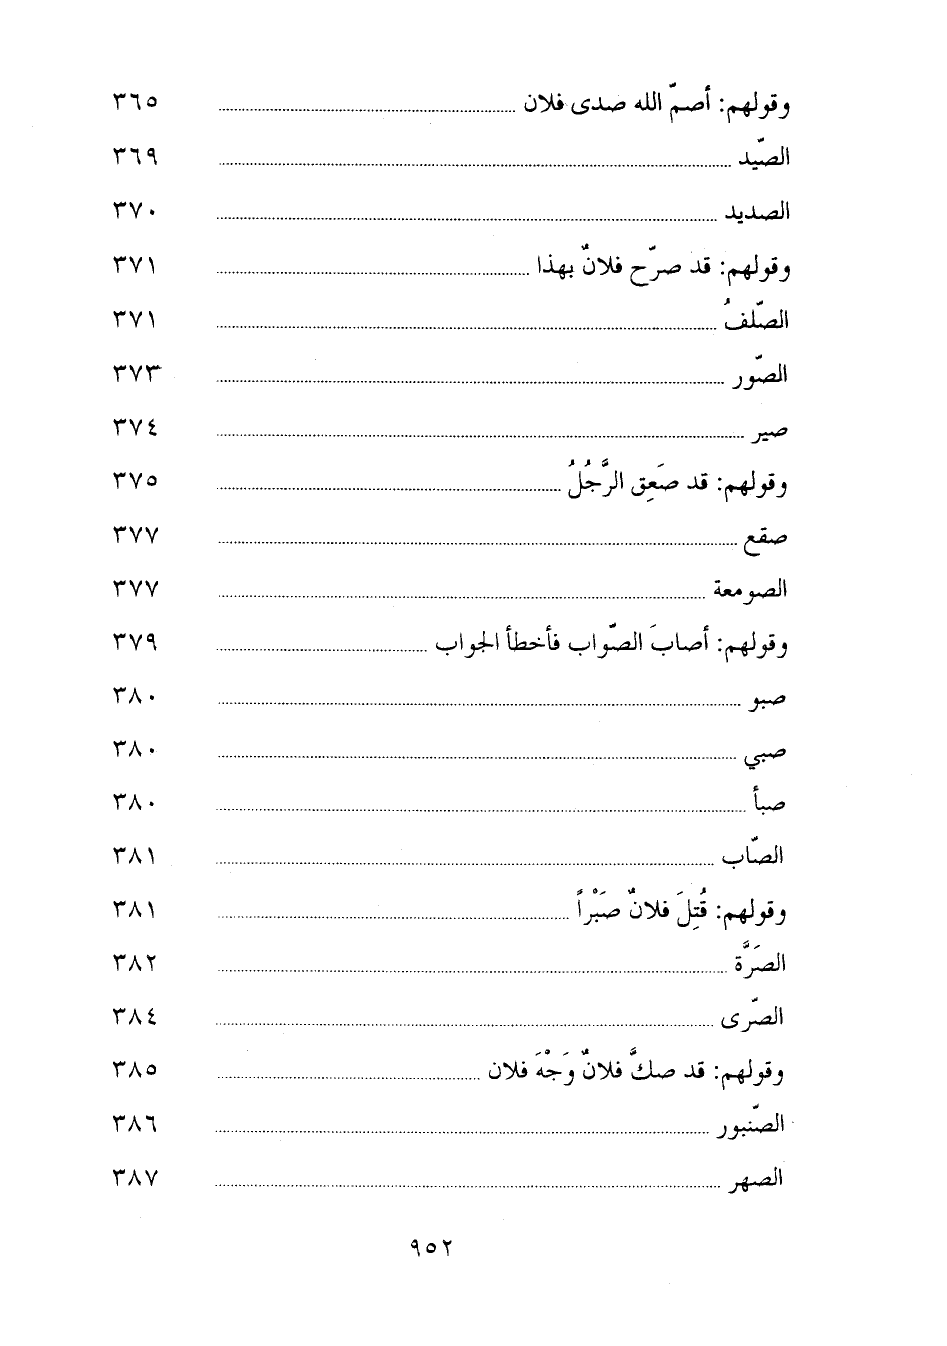 وقولهم: أصمّ الله صدى فلان ........ ٣٦٥
الصّيد ........ ٣٦٩
الصديد ........ ٣٧٠
وقولهم: قد صرّح فلانٌ بهذا ........ ٣٧١
الصّلفُ ........ ٣٧١
الصّور ........ ٣٧٣
صير ........ ٣٧٤
وقولهم: قد صَعِق الرَّجُلُ ........ ٣٧٥
صقع ........ ٣٧٧
الصومعة ........ ٣٧٧
وقولهم: أصابَ الصّواب فأخطأ الجواب ........ ٣٧٩
صبو ........ ٣٨٠
صبي ........ ٣٨٠
صبأ ........ ٣٨٠
الصّاب ........ ٣٨١
وقولهم: قُتِلَ فلانٌ صَبْراً ........ ٣٨١
الصَرَّة ........ ٣٨٢
الصّرى ........ ٣٨٤
وقولهم: قد صكَّ فلانٌ وَجْهَ فلان ........ ٣٨٥
الصّنبور ........ ٣٨٦
الصهر ........ ٣٨٧
٩٥٢